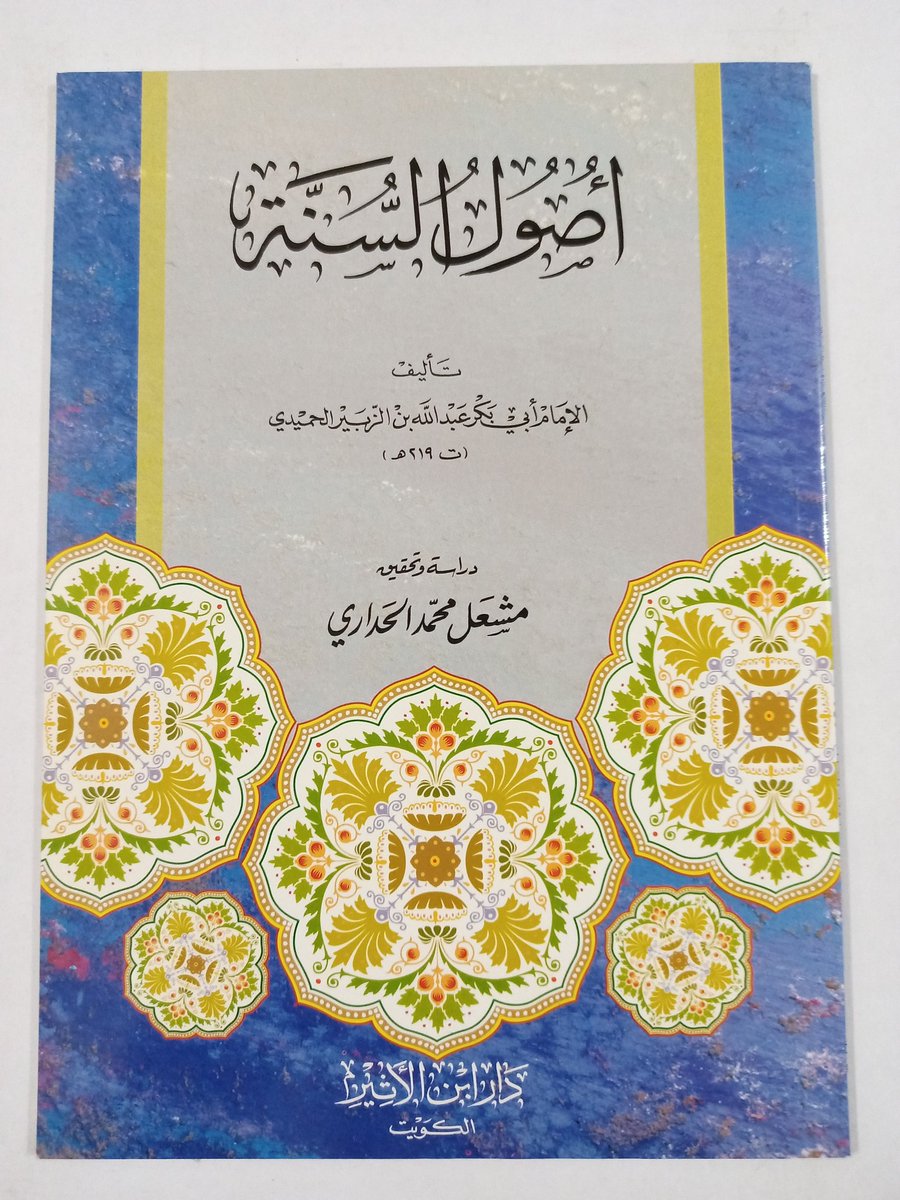 أُصُولُ السُّنَّة
تأليف
الإمام أبي بكر عبد الله بن الزبير الحميدي
(ت ٢١٩ هـ)
دراسة وتحقيق
مشعل محمد الحداري
دار ابن الأثير
الكويت